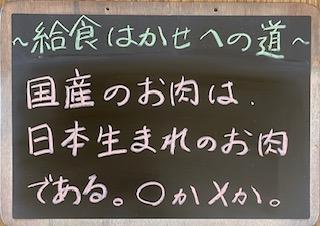 ~給食はかせへの道~
国産のお肉は、
日本生まれのお肉
である。〇か×か。